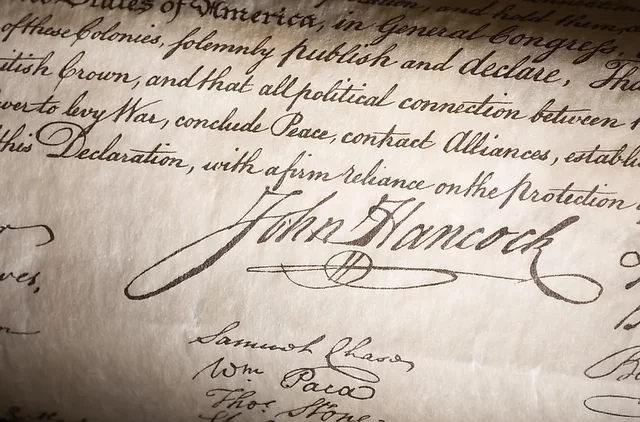 States of America, in General Congress,
of these Colonies, solemnly publish and declare, Tha
itish Crown, and that all political connection between
wer to levy War, conclude Peace, contract Alliances, establi
this Declaration, with a firm reliance on the Protection
John Hancock
ves,
Samuel Chase
Wm Paca
Thos. Stone